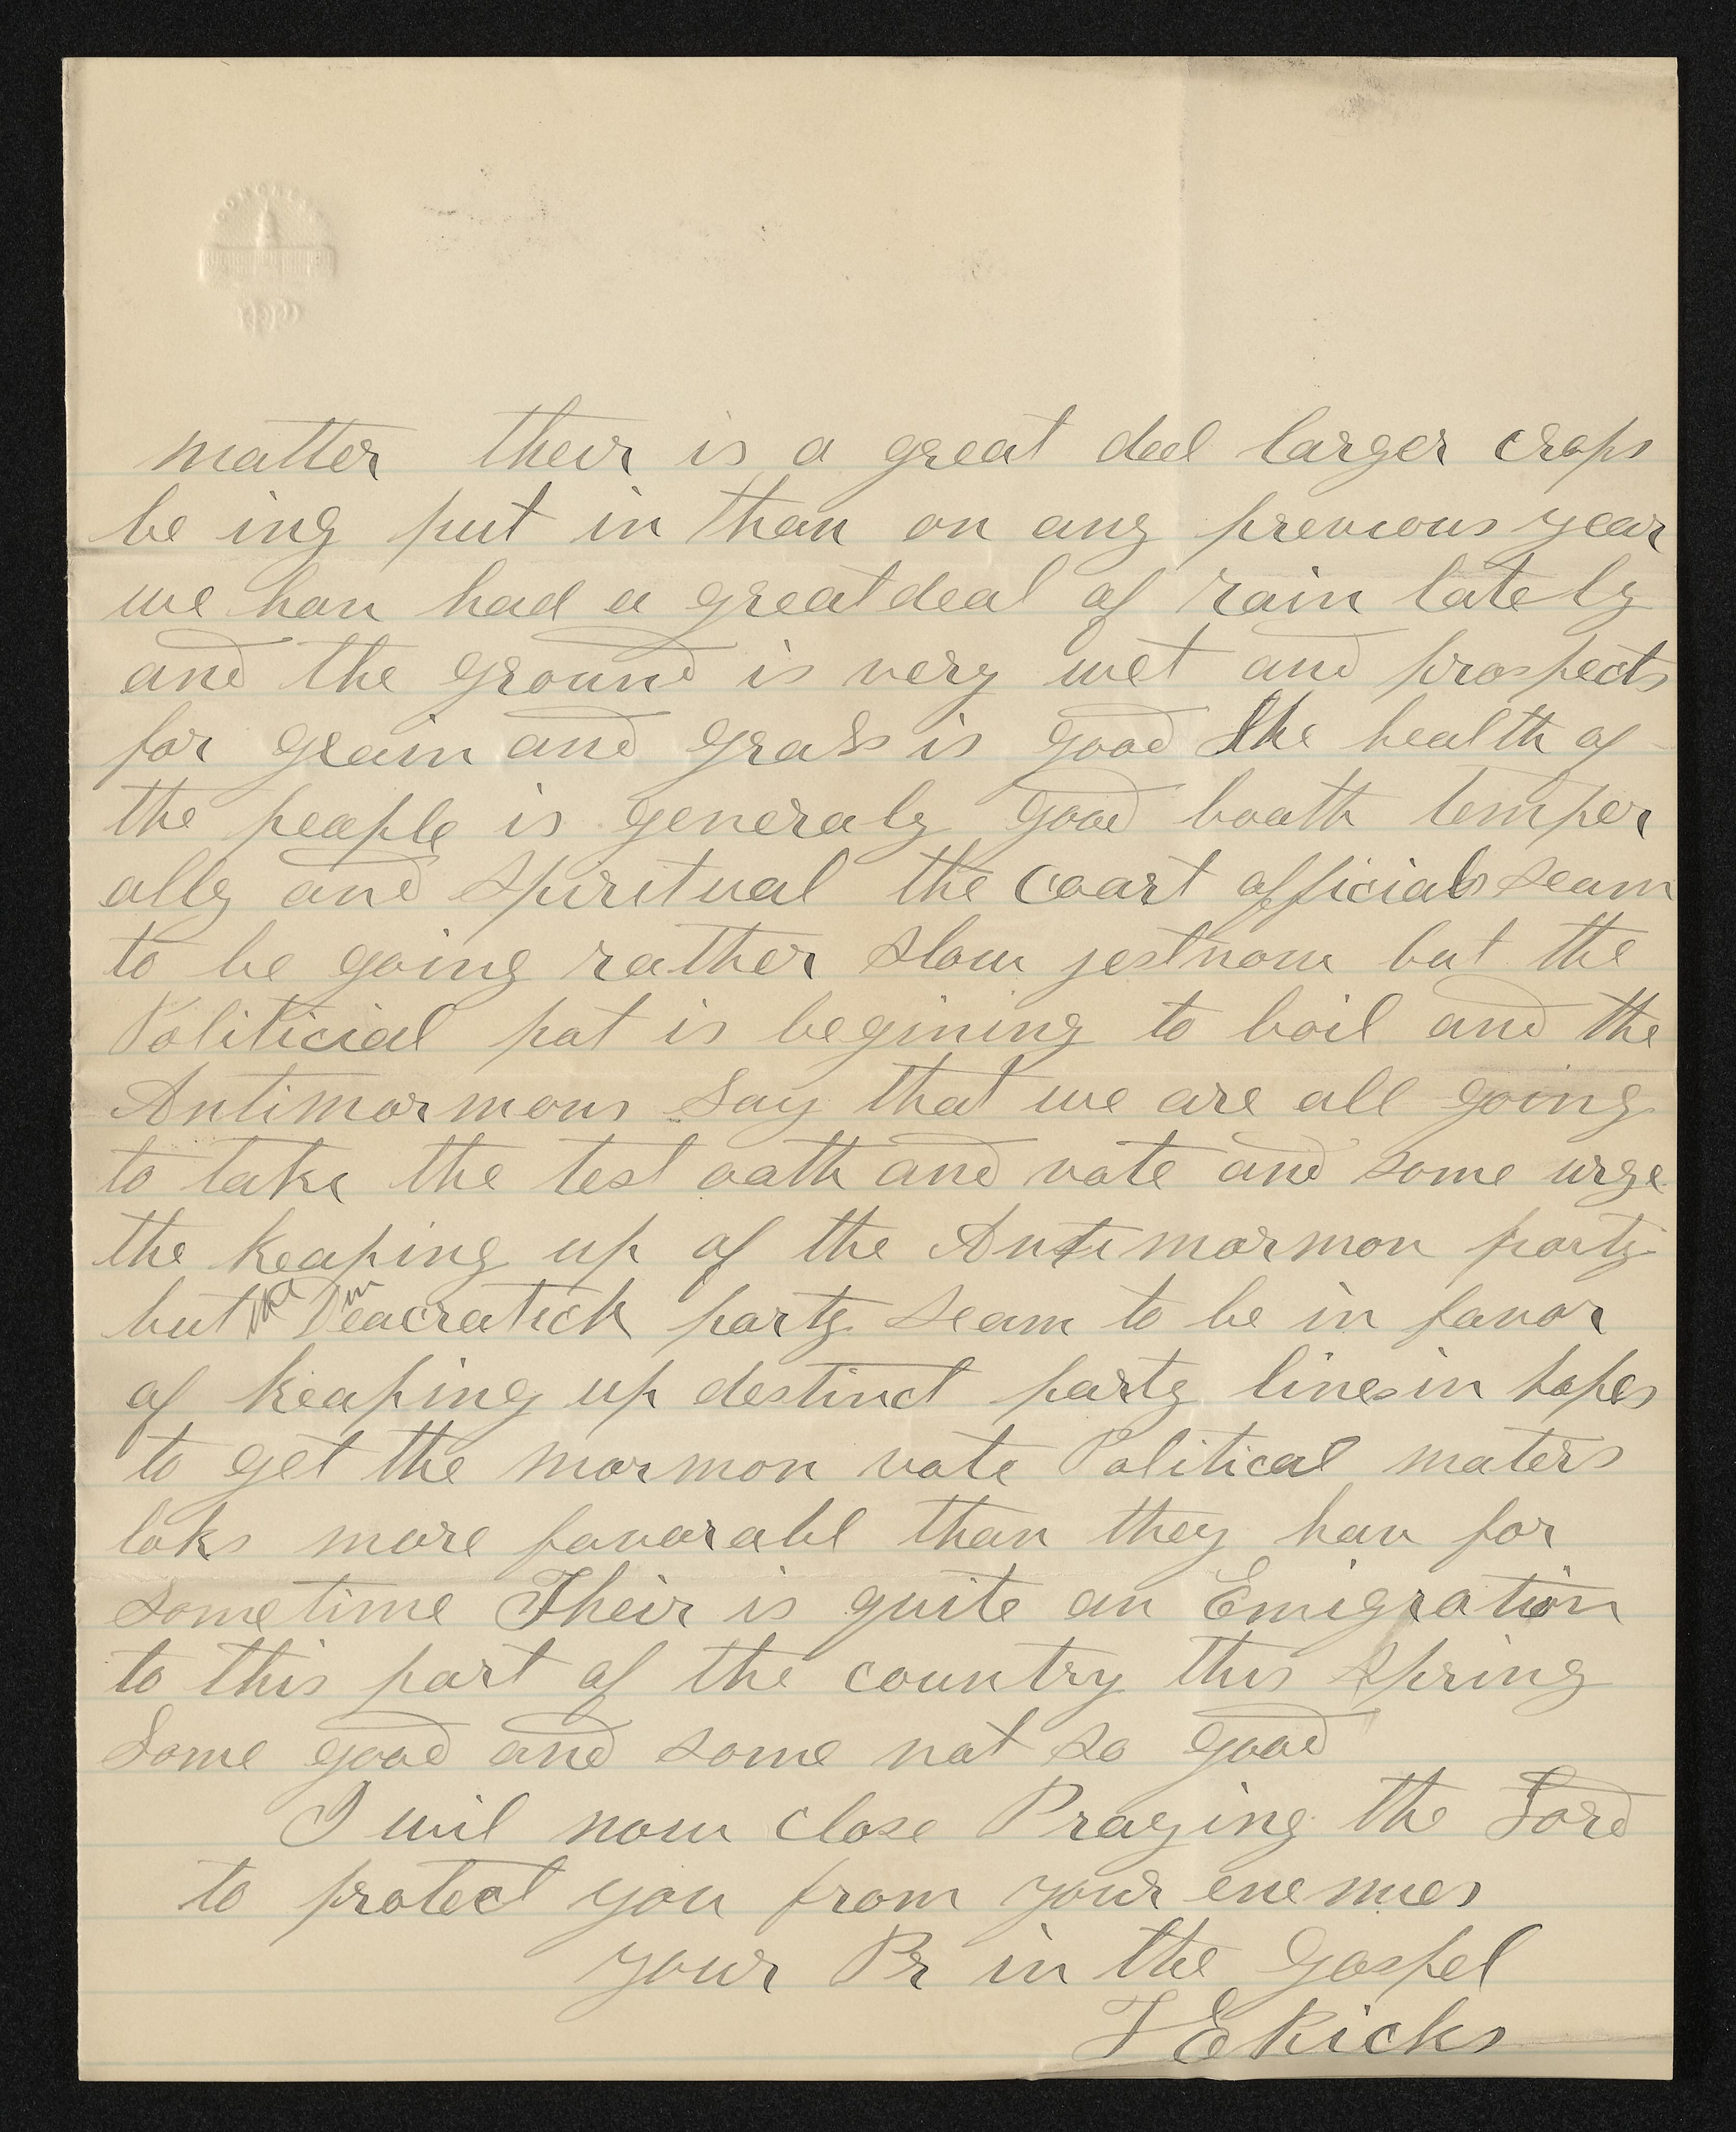 CONGRESS
matter their is a great deel larger crops
be ing put in than on any previous year
we hav had a great deal of rain lately
and the ground is very wet and prospects
for grain and grass is good The health of
the people is generaly good boath temper
ally and Spiritual the Coart officials seam
to be going rather slow jest now but the
Politicial pot is begining to boil and the
Antimormons Say that we are all going
to take the test oath and vote and some urge
the keaping up of the Antimormon party
but the Demacratick party seam to be in favor
of keaping up destinct party lines in hopes
to get the mormon vote Political maters
loks more favorabl than they hav for
sometime Their is quite an Emigration
to this part of the country this Spring
Some good and some not so good
I wil now close Praying the Lord
to protect you from your enemies
your Br in the Gospel
T E Ricks